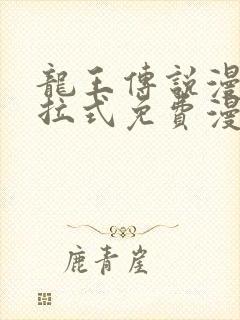 龍王傳說漫
拉式免費漫
鹿青崖